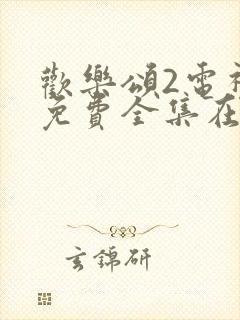 歡樂頌2電視
免費全集在
玄錦研